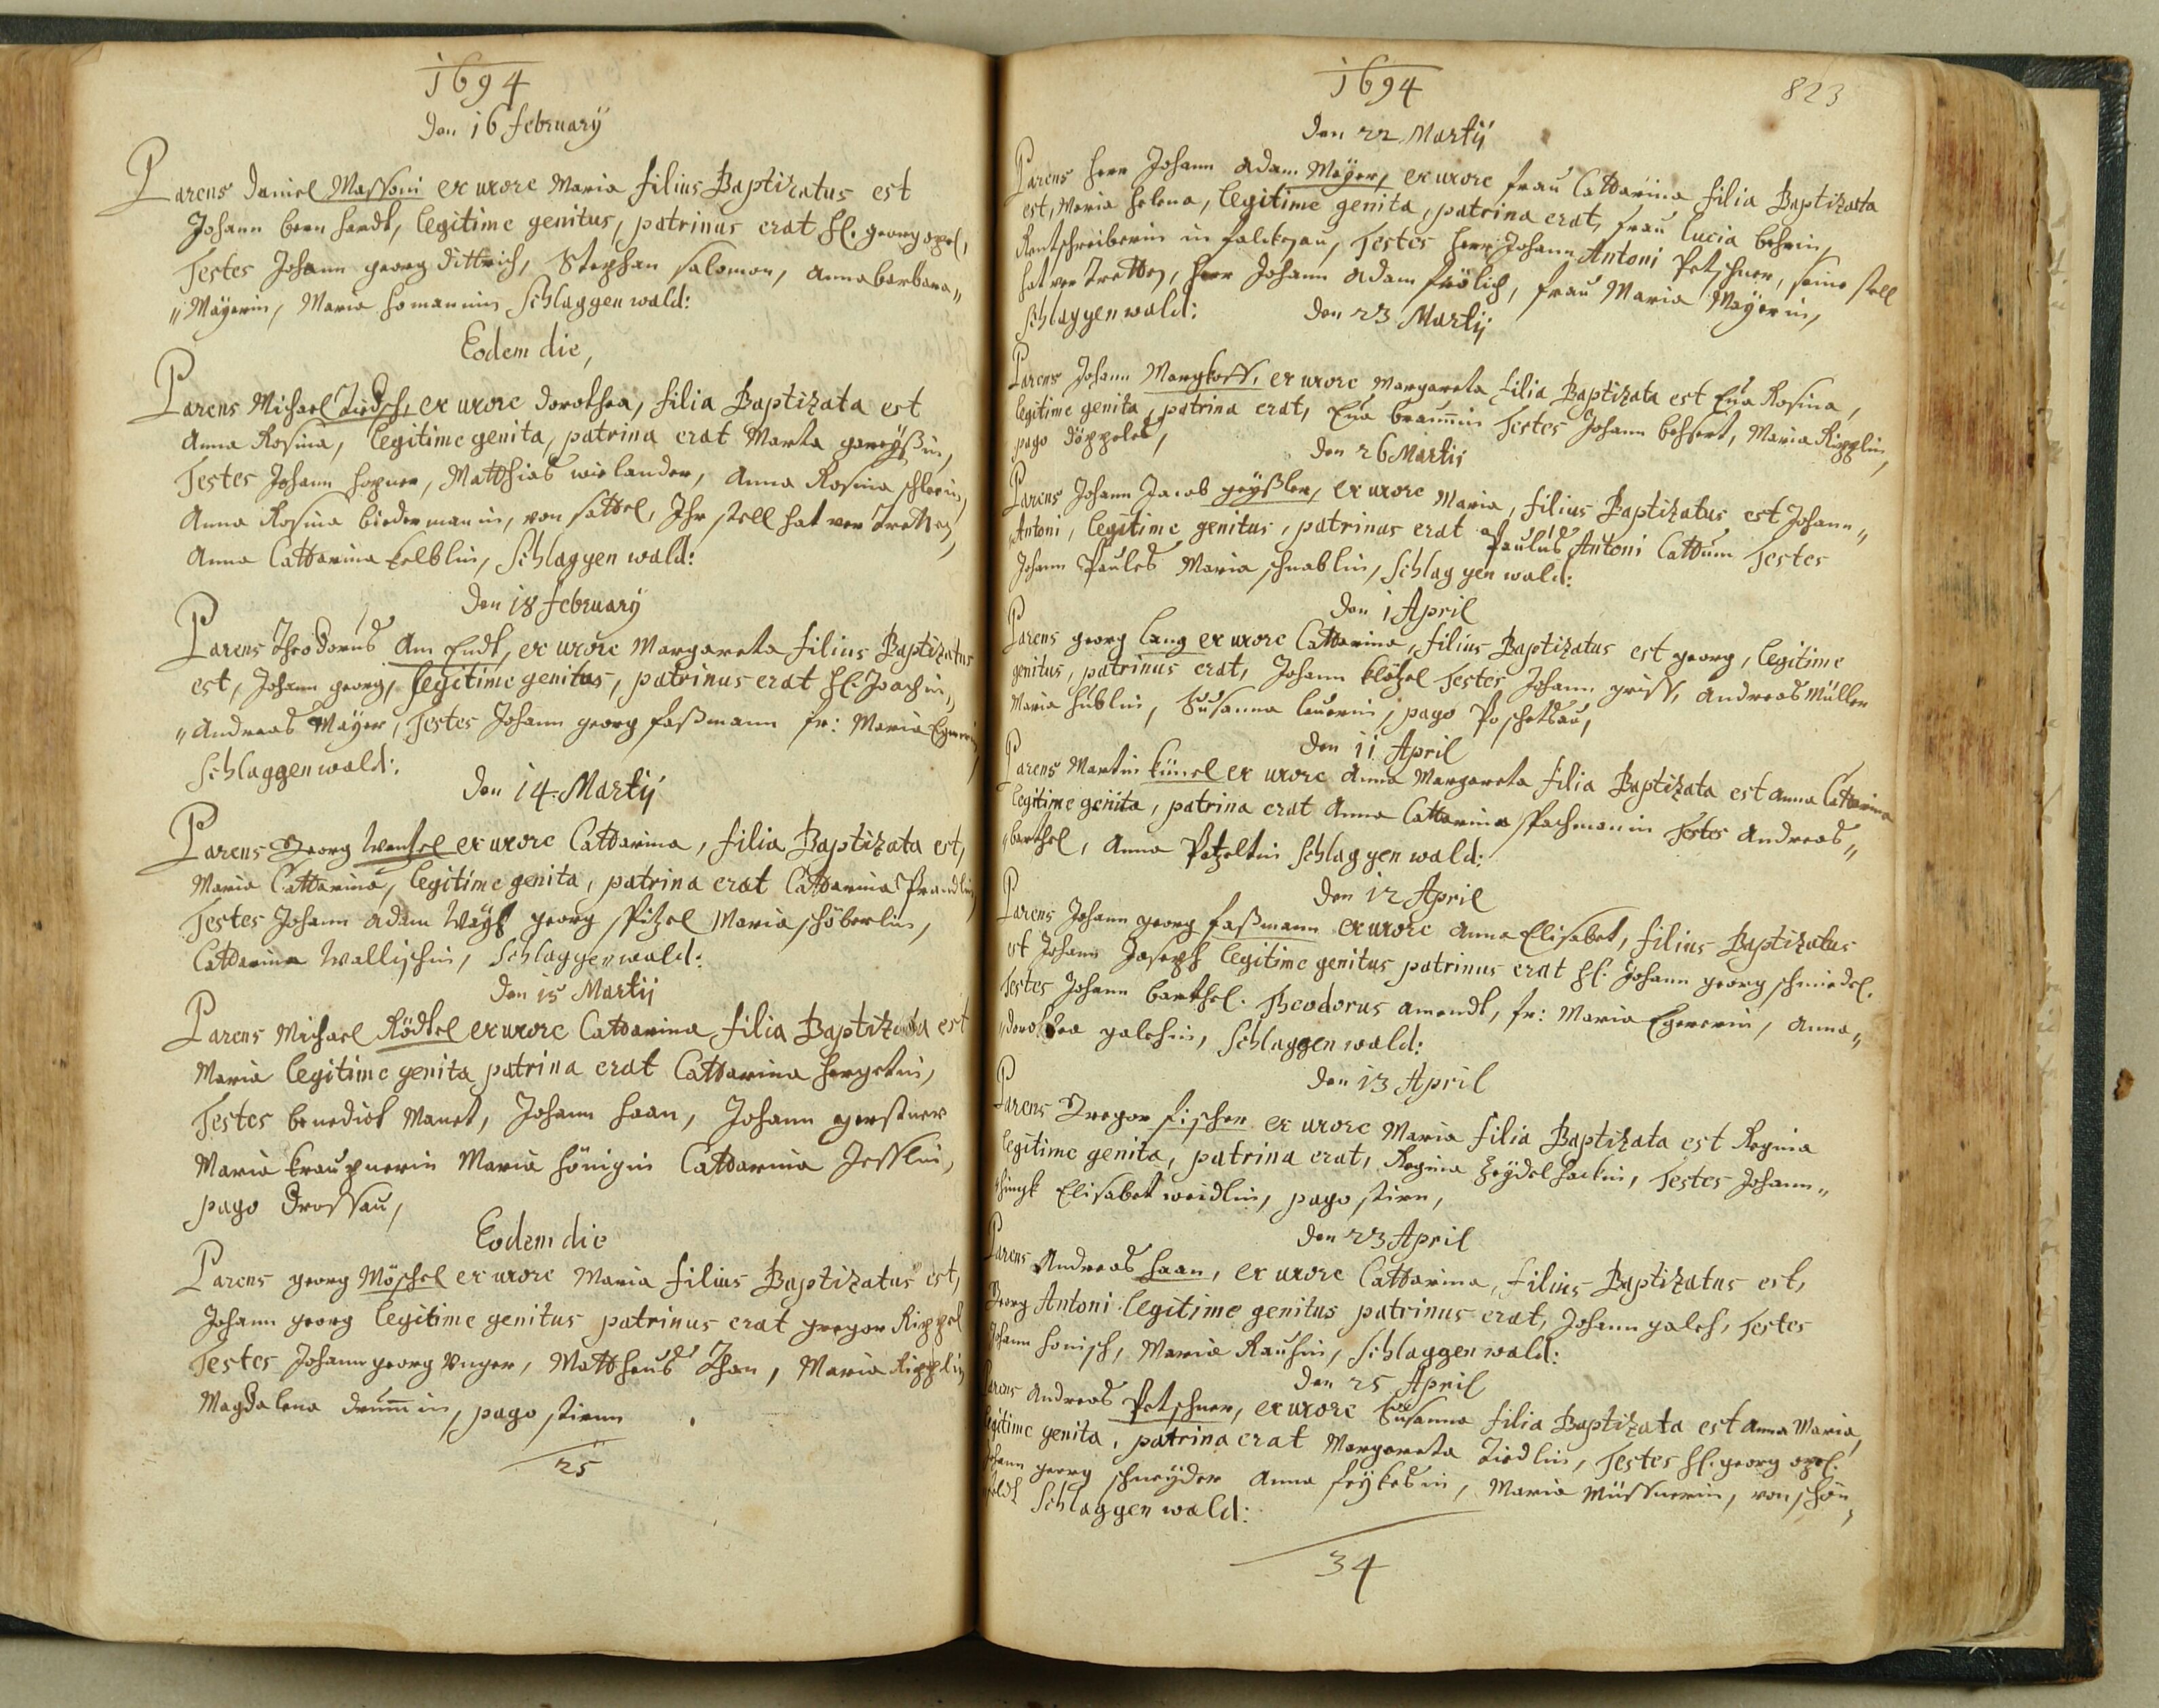 1694
Den 16 February
Parens Daniel Massoni ex uxore Maria filius Baptizatus est
Johann bern hardt, legitime genitus, patrinus erat H. georg opel,
Testes Johann georg Dittrich, Stephan salomon, Anna barbara„
„Mäyerin, Maria homannin Schlaggen wald:
Eodem die,
Parens Michael ex uxore Dorothea, filia Baptizata est
Anna Rosina, legitime genita, patrina erat Marta
Testes Johann hopner, Matthias wielander, Anna Rosina
Anna Rosina biedermanin, von sattel, Ihr stell hat ver tretten,
Anna Cattarina kelblin, Schlaggen wald:
Den 18 February
Parens Theodorus Am Endt, ex uxore Margareta filius Baptizatus
est, Johann georg, legitime genitus, patrinus erat H. Joachim„
„Andreas Mäyer, Testes Johann georg faßmann fr: Maria Egererin
Schlaggenwald:
Den 14. Martij
Parens Georg Wentzel ex uxore Cattarina, filia Baptizata est,
Maria Cattarina, legitime genita, patrina erat Cattarina Prandlin
Testes Johann Adam Wäyß georg spitzel Maria schöberlin,
Cattarina Wallischin, Schlaggenwald:
Den 15 Martij
Parens Michael Rödtel ex uxore Cattarina filia Baptizata est
Maria legitime genita patrina erat Cattarina hergetin,
Testes benedict Manet, Johann haan, Johann gerstner
Maria kraupnerin Maria hönigin Cattarina Jesslin,
pago Drossau,
Eodem die
Parens georg Möschel ex uxore Maria filius Baptizatus est,
Johann georg legitime genitus patrinus erat gregor Rippel
Testes Johann georg Unger, Mattheus Than, Maria Ripplin
Magdalena Drum̄in, pago stirnn
25
1694
823
Den 22 Martij
Parens Herr Johann Adam Mäyer, ex uxore frau Cattarina filia Baptizata
est, Maria Helena, legitime genita, patrina erat, frau Lucia behrin,
Rentschreiberin in falckenau, Testes Herr Johann Antoni Petschner, seine stell
hat ver tretten, Herr Johann Adam frölich, frau Maria Mäyerin,
Schlaggenwald:
Den 23 Martij
Parens Johann ex uxore Margareta filia Baptizata est Eua Rosina,
legitime genita, patrina erat, Eua braun̄in Testes Johann Maria Ripplin,
pago Döppeles,
Den 26 Martij
Parens Johann Jacob geyßler, ex uxore Maria, filius Baptizatus est Johann„
„Antoni, legitime genitus, patrinus erat Paulus Antoni Cattum Testes
Johann Paules Maria schnablin, Schlaggen wald:
Den 1 April
Parens georg Lang ex uxore Cattarina, filius Baptizatus est georg, legitime
genitus, patrinus erat, Johann klötzel Testes Johann Andreas Müller
Maria Hüblin, Susanna lauerin, pago Poschetzau,
Den 11 April
Parens Martin künel ex uxore Anna Margareta filia Baptizata est Anna Cattarina
legitime genita, patrina erat Anna Cattarina spachmanin Testes Andreas„
„barthel, Anna Petzeltin Schlaggen wald:
Den 12 April
Parens Johann georg faßmann ex uxore Anna Elisabet, filius Baptizatus
est Johann Joseph legitime genitus patrinus erat H. Johann georg schmiedel.
Testes Johann barthel. Theodorus amendt, fr: Maria Egererin, Anna„
„dorothea galchin, Schlaggen wald:
Den 13 April
Parens Gregor fischer ex uxore Maria filia Baptizata est Regina
legitime genita, patrina erat, Regina Zeydelhackin, Testes Johann„
Elisabet weidlin, pago stirn,
Den 23 April
Parens Andreas haan, ex uxore Cattarina, filius Baptizatus est,
Georg Antoni legitime genitus patrinus erat, Johann galch, Testes
Johann honisch, Maria Rauhin, Schlaggen wald:
Den 25 April
Parens Andreas Petschner, ex uxore Susanna filia Baptizata est Anna Maria,
legitime genita, patrina erat Margareta Zirdlin, Testes H. georg opel.
Johann georg schneyder Anna Maria Müssnerin, von schön„
feldt Schlaggen wald:
34